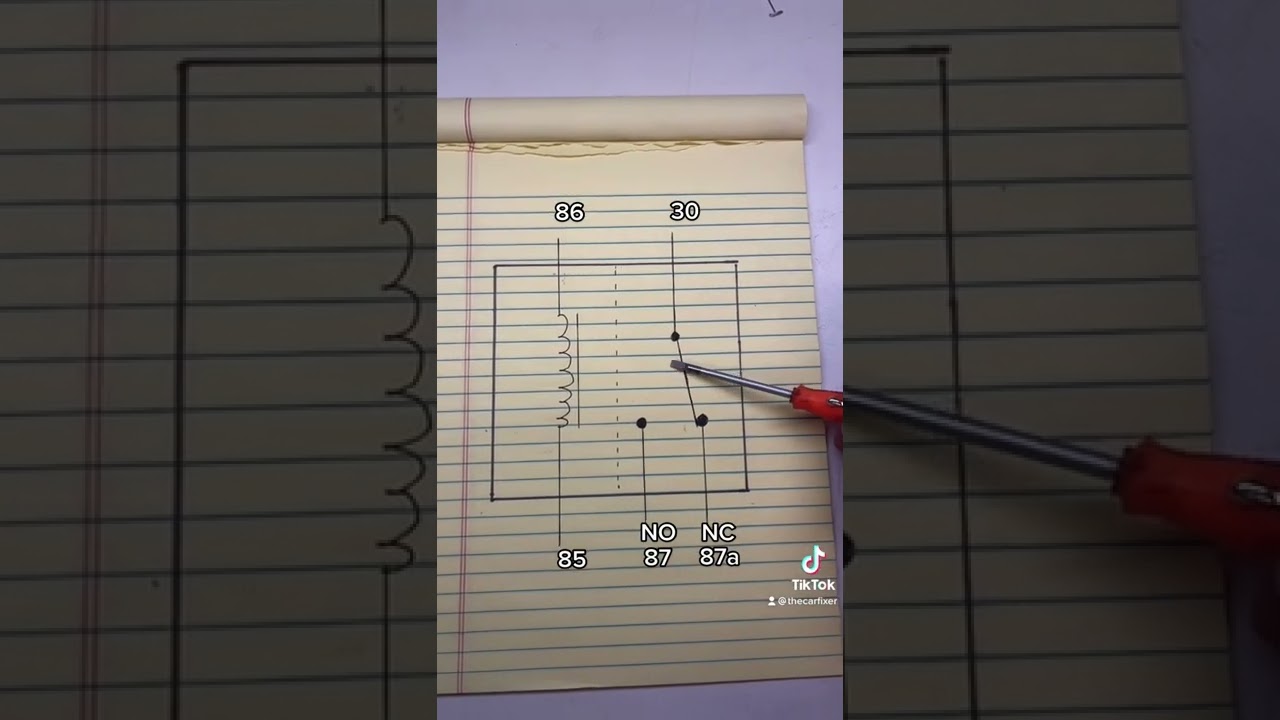 86 30
NO NC
85 87 87a
TikTok
@thecarfixer